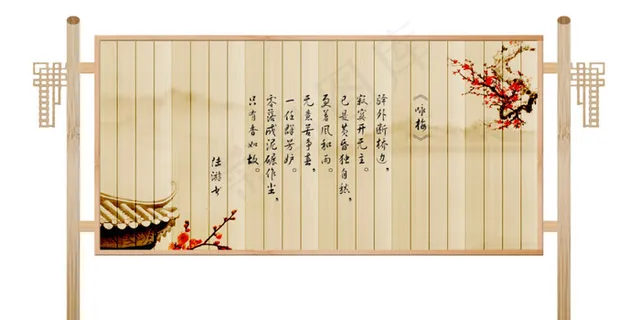 《咏梅》
驿外断桥边，
寂寞开无主。
已是黄昏独自愁，
更著风和雨。
无意苦争春，
一任群芳妒。
零落成泥碾作尘，
只有香如故。
陆游书